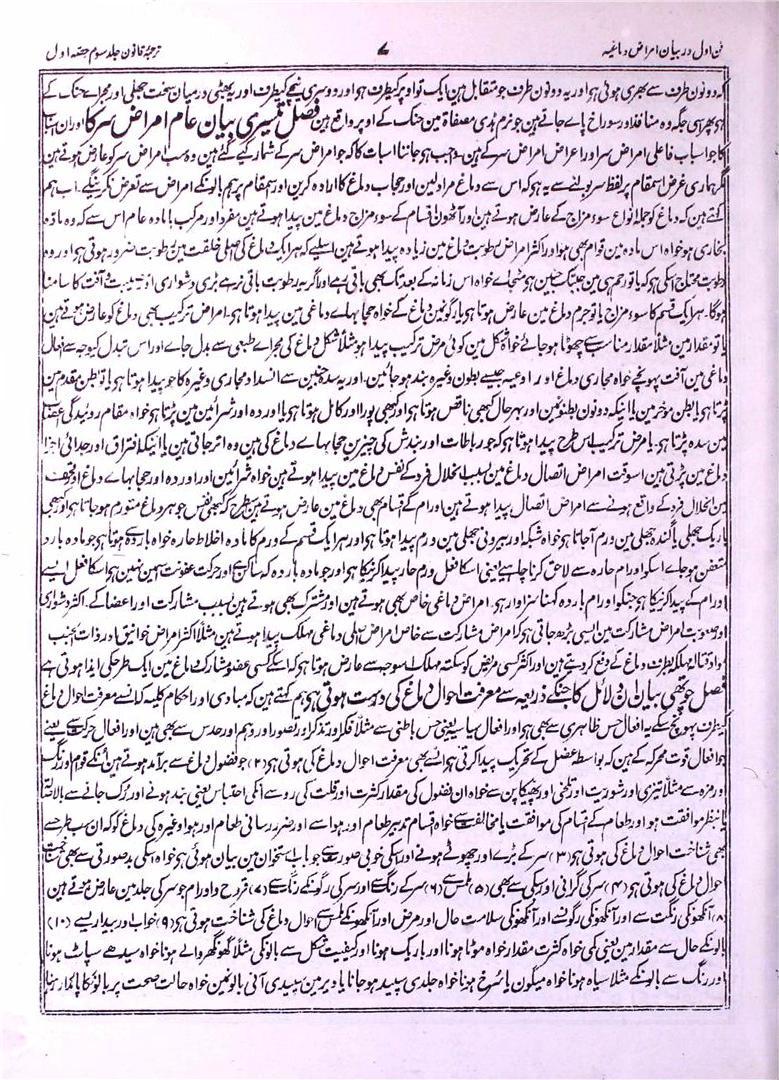 فن اول در بیان امراض دماغیہ ۷ ترجمۂ قانون جلد سوم حصہ اول
کہ دونون طرف سے بھری ہوئی ہو اور یہ دونون طرف جو متقابل ہین ایک تو اوپر کیطرف ہو اور دوسری نیچے کیطرف اور یہ بھٹی درمیان سخت جھلی اور مجراے حنک کے
ہو پھر اسی جگہ وہ منافذ اور سوراخ پاے جاتے ہین جو نرم ہڈی مصفاة مین حنک کے اوپر واقع ہین فصل تیسری بیان عام امراض سر کا اور ان اسباب
کا جو اسباب فاعلی امراض سر اور اعراض امراض سر کے ہین واجب ہو جاننا اسبات کا کہ جو امراض سر کے شمار کیے گئے ہین وہ سب امراض سر کو عارض ہوتے ہین
مگر ہماری غرض اسمقام پر لفظ سر بولنے سے یہ ہو کہ اس سے دماغ مراد لین اور حجاب دماغ کا ارادہ کرین اور ہمقام پر ہم بالونکے امراض سے تعرض نکرینگے۔ اب ہم
کہتے ہین کہ دماغ کو جملہ انواع سوء مزاج کے عارض ہوتے ہین اور آٹھون اقسام کے سوء مزاج دماغ مین پیدا ہوتے ہین مفرد اور مرکب با مادہ عام اس سے کہ وہ مادہ
بخاری ہو خواہ اس مادہ مین قوام بھی ہو اور اکثر امراض رطوبت دماغ مین زیادہ پیدا ہوتے ہین اسلیے کہ ہر ایک دماغ کی اصلی خلقت مین رطوبت ضرور ہوتی ہو اور وہ
رطوبت محتاج اسکی ہو کہ یا تو رحم ہی مین جبتک جنین ہو خواہ اس زمانہ کے بعد تک بھی باقی رہے اور اگر یہ رطوبت باقی نرہے بڑی دشواری اور آفت کا سامنا
ہوگا۔ ہر ایک قسم کا سوء مزاج یا تو جرم دماغ مین عارض ہوتا ہو یا رگونمین دماغ کے خواہ حجابہاے دماغی مین پیدا ہوتا ہو۔ امراض ترکیب بھی دماغ کو عارض ہوتے ہین
یا تو مقدار مین مثلاً مقدار مناسب سے چھوٹا ہوجائے خواہ شکل مین کوئی مرض ترکیب پیدا ہو مثلاً شکل دماغ کی مجراے طبعی سے بدل جاے اور اس تبدل کیوجہ سے افعال
دماغی مین آفت پہونچے خواہ مجاری دماغ اور اوعیہ جیسے بطون وغیرہ بند ہو جائین۔ اور یہ سدہ جنین سے انسداد مجاری وغیرہ کا جو پیدا ہوتا ہو یا تو بطن مقدم مین
پڑتا ہو یا بطن مؤخر مین یا ایکہ دونون بطنونمین اور بہرحال کبھی ناقص ہوتا ہو اور کبھی پورا اور کامل ہوتا ہو یا اوردہ اور شرائین مین پڑتا ہو خواہ مقام روئیدگی عصب
مین سدہ پڑتا ہو۔ یا مرض ترکیب اس طرح پیدا ہوتا ہو کہ جو رباطات اور بندش کی چیزین حجابہاے دماغ کی ہین وہ اتر جاتی ہین یا ایکہ افتراق اور جدائی اجزاے
دماغ مین پڑتی ہین اسوقت امراض اتصال دماغ مین بسبب انحلال فرد کے نفس دماغ مین پیدا ہوتے ہین خواہ شرائین اور اوردہ اور حجابہاے دماغ اور قحف
مین انحلال فرد کے واقع ہونے سے امراض اتصال پیدا ہوتے ہین اورام کے اقسام بھی دماغ مین عارض ہوتے ہین اسطرح کہ کبھی نفس جوہر دماغ متورم ہوجاتا ہو اور کبھی
باریک جھلی یا گندہ جھلی مین ورم آجاتا ہو خواہ شبکہ اور بیرونی جھلی مین ورم پیدا ہوتا ہو اور ہر ایک قسم کے ورم کا مادہ اخلاط حارہ خواہ باردہ سے ہوتا ہو جو مادہ بارد
متعفن ہوجاے اسکو اورام حارہ سے لاحق کرنا چاہیے یعنی اسکا فعل ورم حار پیدا کرنیکا ہو اور جو مادہ باردہ کہ ساکن ہو اور حرکت عفونت سہین نہین ہو اسکا فعل ایسے
اورام کے پیدا کرنیکا ہو جنکو اورام باردہ کہنا سزاوار ہو۔ امراض دماغی خاص بھی ہوتے ہین اور مشترک بھی ہوتے ہین بسبب مشارکت اور اعضا کے۔ اکثر دشواری
اور صعوبت امراض مشارکت مین ایسی بڑھ جاتی ہو کہ امراض مشارکت سے خاص امراض اصلی دماغی مہلک پیدا ہوتے ہین مثلاً اکثر امراض خوانیق اور ذات الجنب
مواد قتالہ مہلکہ بطرف دماغ کے دفع کر دیتے ہین اور اکثر کسی مریض کو سکتہ مہلک اسوجہ سے عارض ہوتا ہو کہ اسکے کسی عضو مشارک دماغ مین ایک طرحکی ایذا ہوتی ہے
فصل چوتھی بیان ان دلائل کا جنکے ذریعہ سے معرفت احوال دماغ کی درست ہوتی ہی ہم کہتے ہین کہ مبادی اور احکام کلیہ کہ اسنے معرفت احوال دماغ
کیطرف پہونچ سکے یہ افعال حس ظاہری سے بھی ہو اور افعال سیاسیہ یعنی حس باطنی سے مثلاً فکر اور تذکر اور تصور اور وہم اور حدس سے بھی ہین اور افعال حرکت سے یعنے
جو افعال قوت محرکہ کے ہین کہ بواسطہ عضل کے تحریک پیدا کرتی ہو اسنے بھی معرفت احوال دماغ کی ہوتی ہو (۲) جو فضول دماغ سے برآمد ہوتے ہین اُنکے قوام اور رنگ
اور مزہ سے مثلاً تیزی اور شوریت اور تلخی اور پھیکاپن سے خواہ ان فضول کی مقدار کثرت اور قلت کی روسے انکی احتباس یعنی بند ہونے اور رُک جانے سے
بانظر موافقت ہو اور طعام کے اقسام کی موافقت یا مخالفت سے خواہ اقسام تدبیر طعام اور ہوا سے اور ضرر رسانی طعام اور ہوا وغیرہ کی دماغ کو کہ ان سب طرحسے
بھی شناخت احوال دماغ کی ہوتی ہو (۳) سر کے بڑے اور چھوٹے ہونے اور اسکی خوبی صورت سے جو باب استخوان مین بیان ہوئی ہو خواہ اسکی بدصورتی سے بھی شناخت
احوال دماغ کی ہوتی ہو (۴) سر کی گرانی اور سبکی سے بھی (۵) لمس سے (۶) سر کے رنگ سے اور سر کی رگونکے رنگ سے (۷) قروح و اورام جو سر کی جلد مین عارض ہوتے ہین
(۸) آنکھونکی رنگت سے اور آنکھونکی رگونسے اور آنکھونکی سلامت حال اور مرض اور آنکھونکے لمس سے احوال دماغ کی شناخت ہوتی ہو (۹) خواب اور بیداریسے (۱۰)
بالونکے حال سے مقدار مین یعنی کمی خواہ کثرت مقدار خواہ موٹا ہونا اور باریک ہونا اور کیفیت شکل سے بالونکی مثلاً گھونگھروالے ہونا خواہ سیدھے سپاٹ ہونا
اور رنگ سے بالونکے مثلاً سیاہ ہونا خواہ میگون یا سُرخ ہونا خواہ جلدی سپید ہوجانا یا دیر مین سپیدی آنی بالونمین خواہ حالت صحت پر بالونکا پائدار رہنا